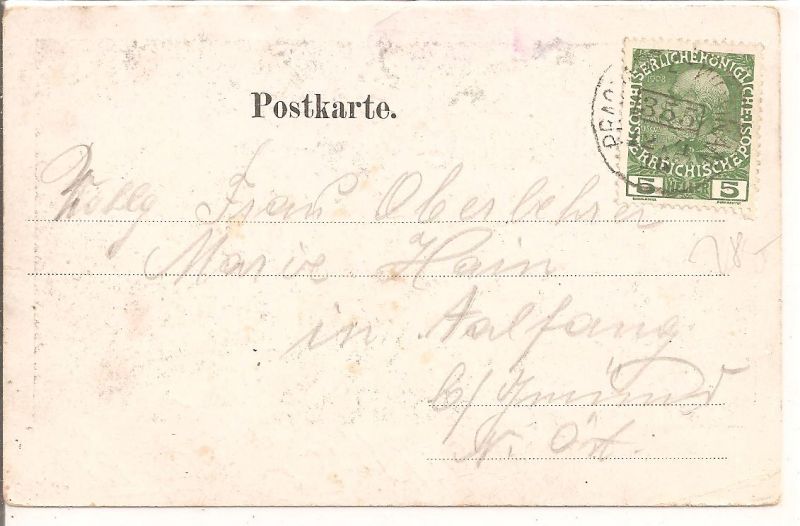 Postkarte.
KAISERLICHE KÖNIGLICHE
ÖSTERREICHISCHE POST
1908
5 5
PRAG
Wohlg Frau Oberlehrer
Marie Hain
in Aalfang
b/ Gmünd
N. Öst.